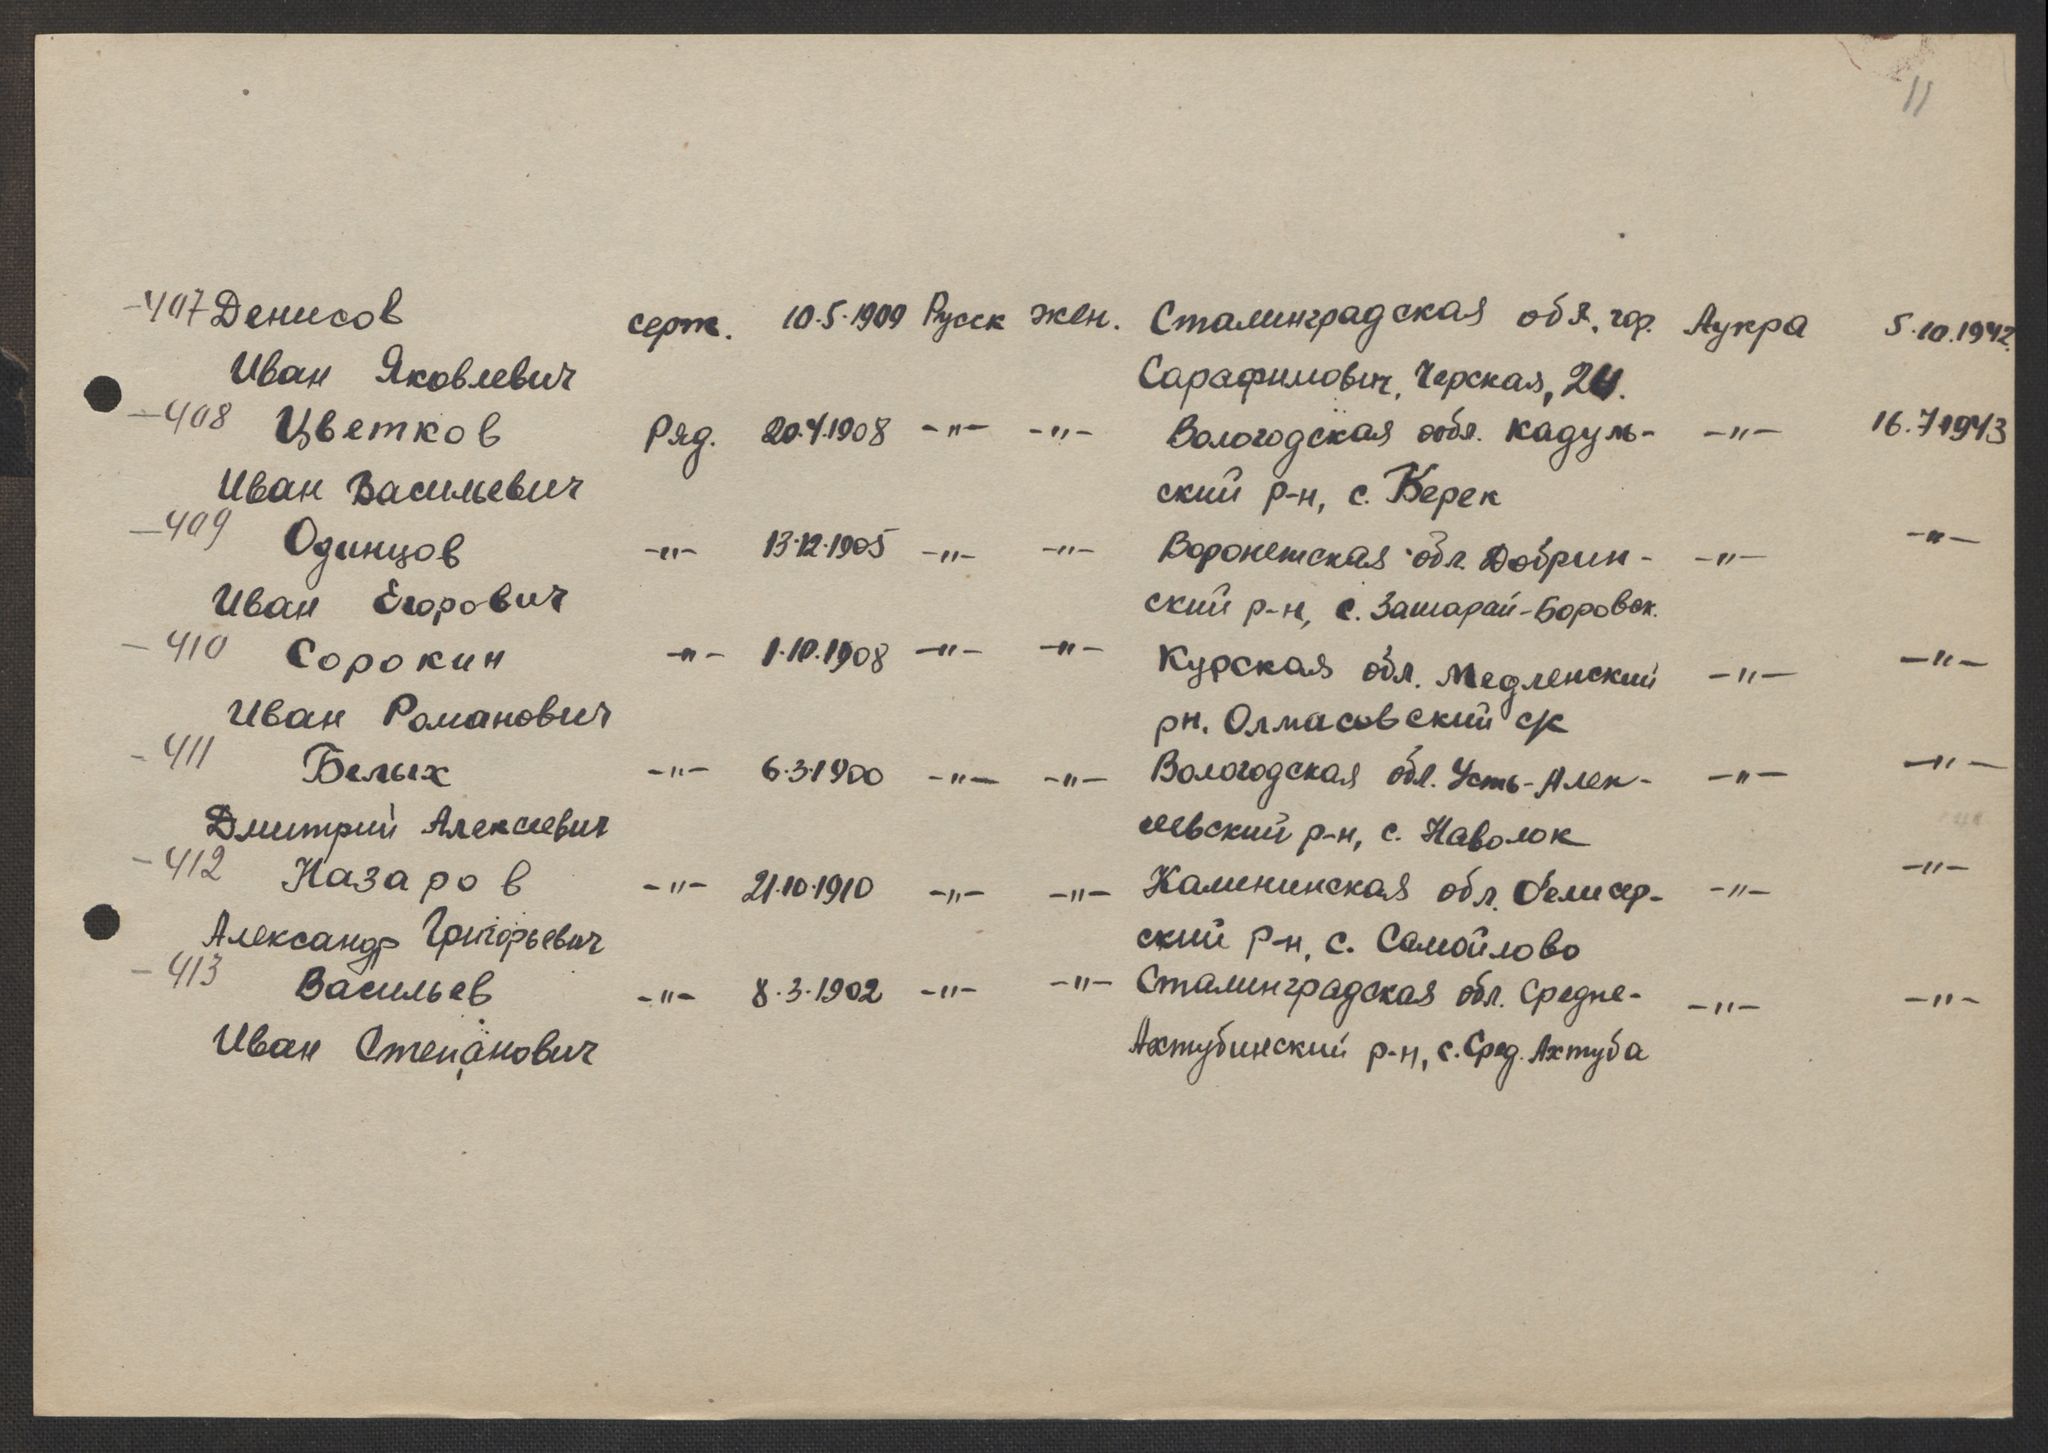 11
-407 Денисов серж. 10.5.1909 Русск жен. Сталинградская обл. гор. Аукра 5.10.1942.
Иван Яковлевич Сарафимович, Черская, 24.
-408 Цветков Ряд. 20.4.1908 -"- -"- Вологодская обл. Кадуль- -"- 16.7.1943
Иван Васильевич ский р-н, с. Верек
-409 Одинцов -"- 13.12.1905 -"- -"- Воронежская обл. Добрин- -"- -"-
Иван Егорович ский р-н, с. Зашарай-Боровск.
-410 Сорокин -"- 1.10.1908 -"- -"- Курская обл. Медленский -"- -"-
Иван Романович рн. Олмасовский с/с
-411 Белых -"- 6.3.1900 -"- -"- Вологодская обл. Усть-Алек- -"- -"-
Дмитрий Алексеевич сеевский р-н, с. Наволок
-412 Назаров -"- 21.10.1910 -"- -"- Калининская обл. -"- -"-
Александр Григорьевич ский р-н, с. Самойлово
-413 Васильев -"- 8.3.1902 -"- -"- Сталинградская обл. Средне- -"- -"-
Иван Степанович Ахтубинский р-н, с. Сред. Ахтуба